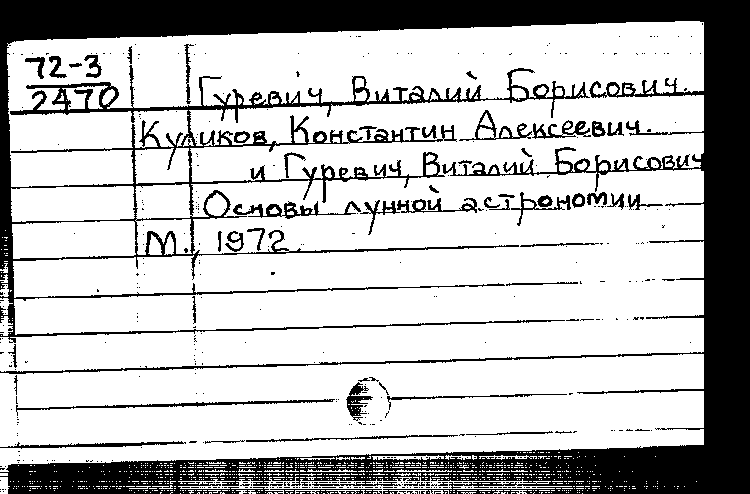 72-3
2470
Гуревич, Виталий Борисович.
Куликов, Константин Алексеевич.
и Гуревич, Виталий Борисович
Основы лунной астрономии
М., 1972.